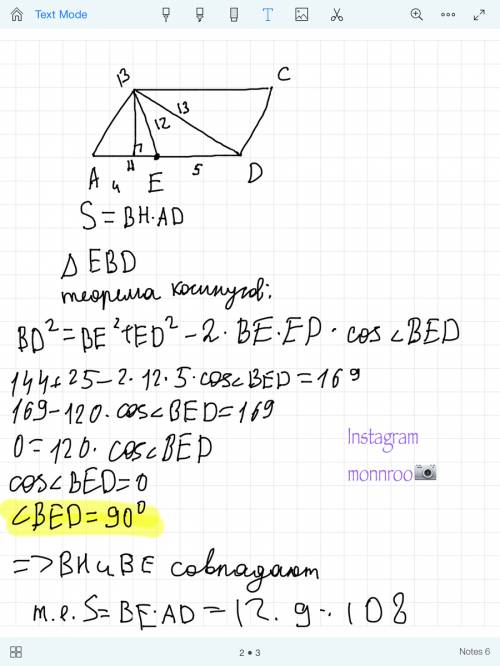 Text Mode
B
C
13
12
A
4
H
E
5
D
S = BH·AD
△ EBD
теорема косинусов:
BD² = BE² + ED² - 2 · BE · ED · cos∠BED
144 + 25 - 2 · 12 · 5 · cos∠BED = 169
169 - 120 · cos∠BED = 169
0 = 120 · cos∠BED
cos∠BED = 0
∠BED = 90⁰
=> BH и BE совпадают
т.е. S = BE · AD = 12 · 9 = 108
Instagram
monnroo📷
2 • 3
Notes 6